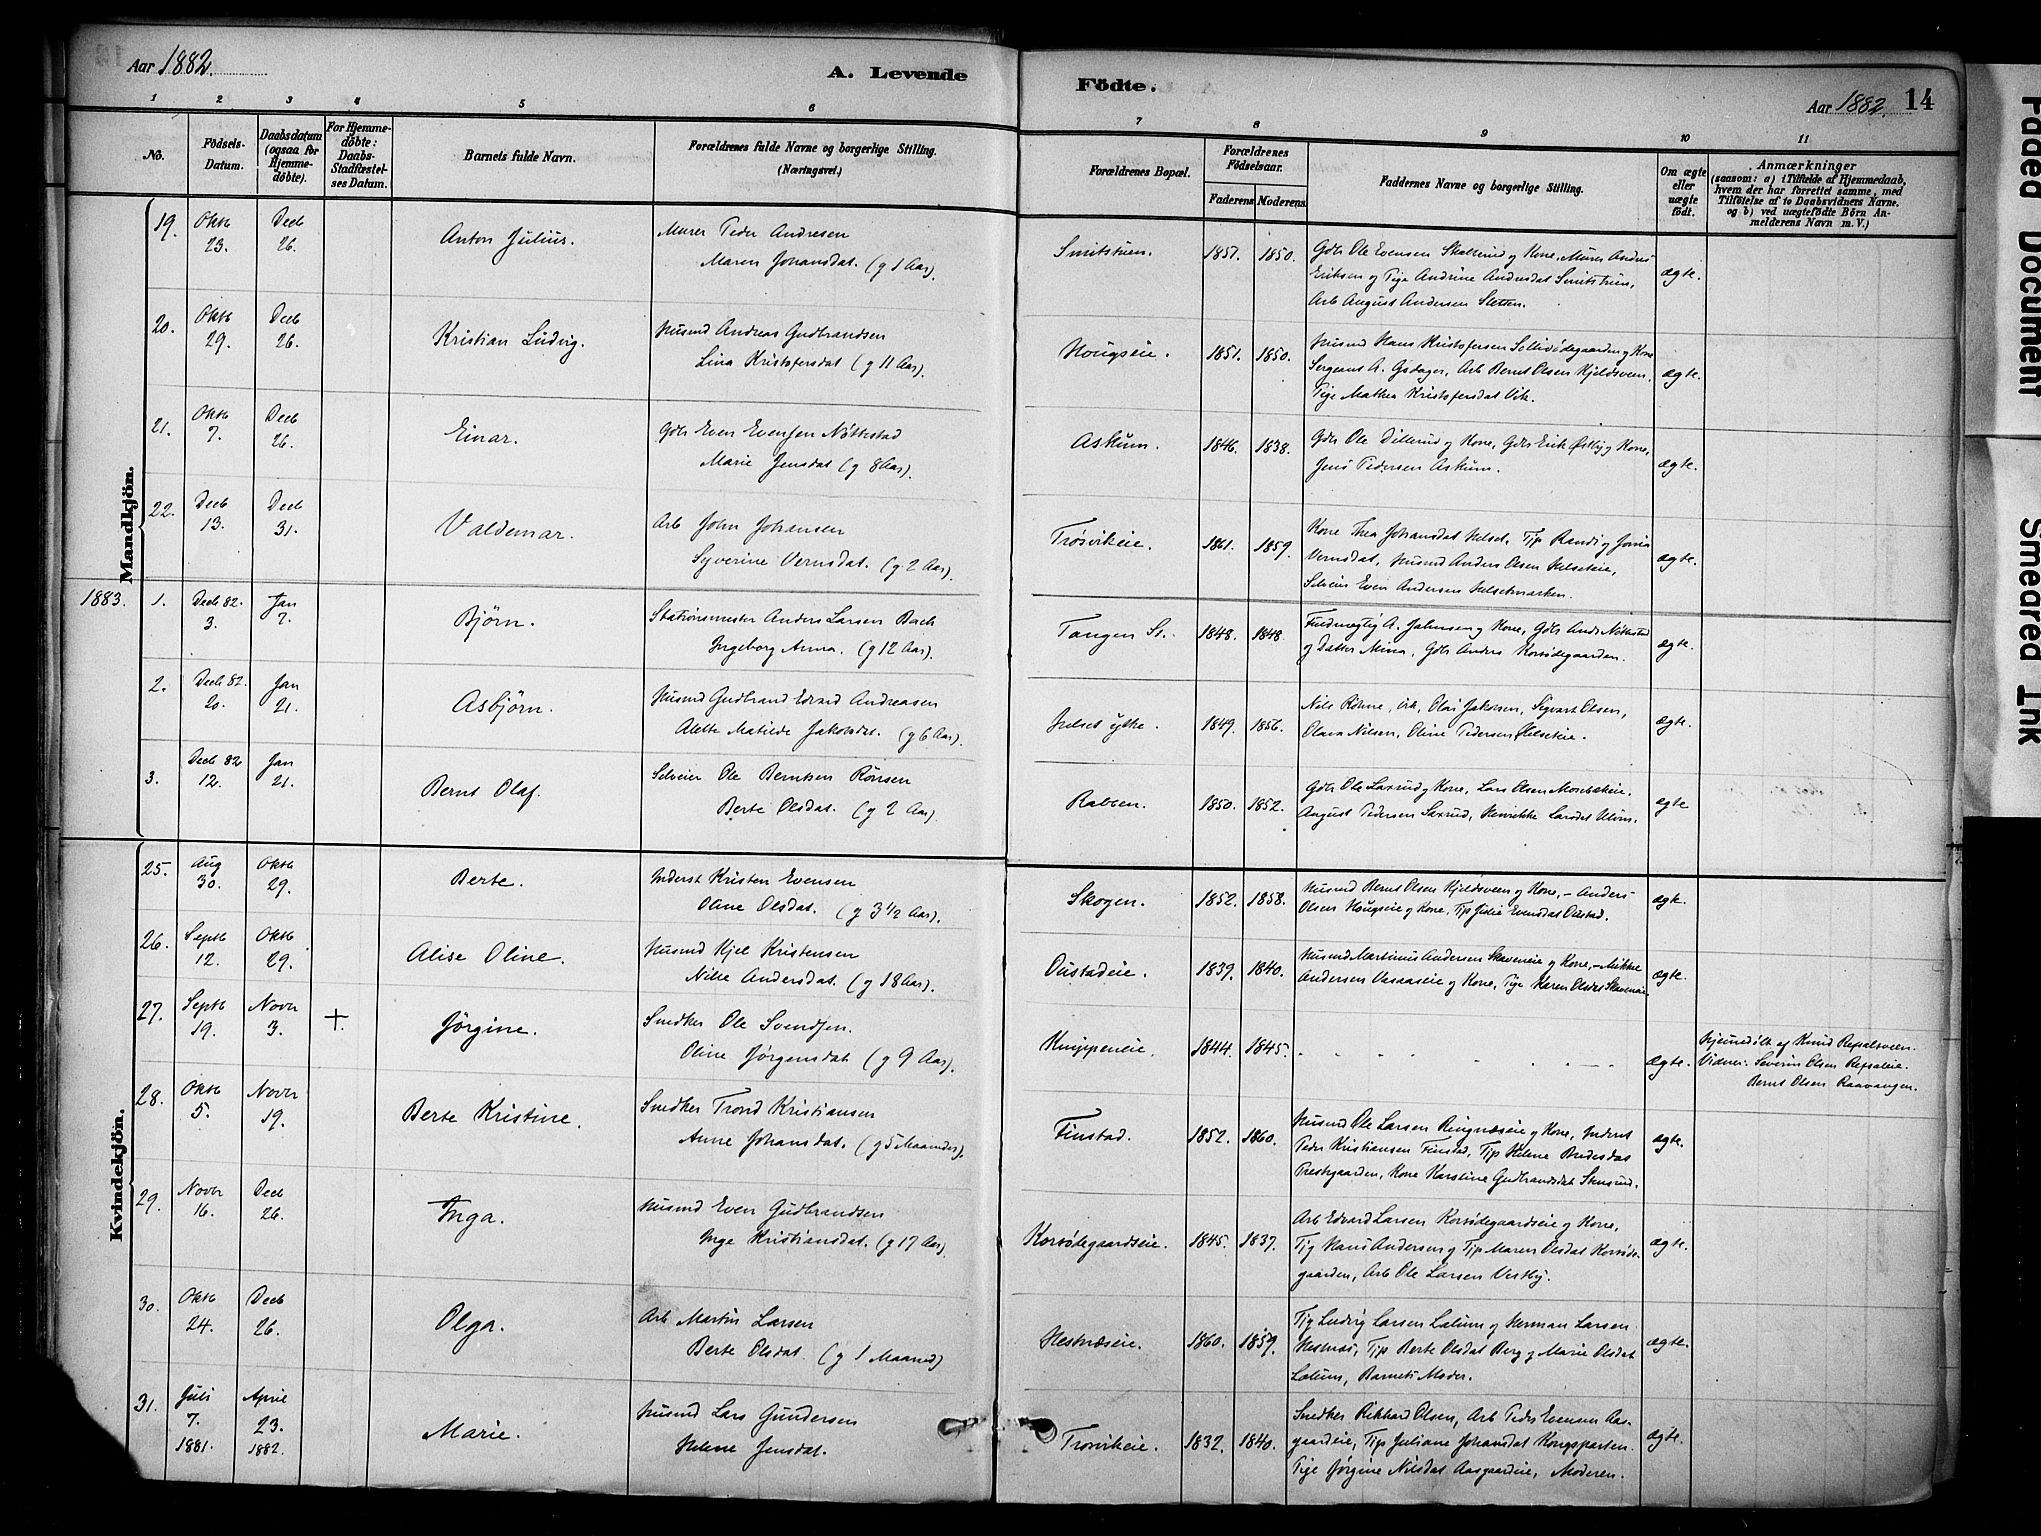 Aar 1882.
A. Levende
Födte.
Aar 1882.
14
1 2 3 4 5 6 7 8 9 10 11
No.
Födsels-
Datum.
Daabsdatum
(ogsaa for
Hjemme-
döbte).
For Hjemme-
döbte:
Daabs-
Stadfæstel-
ses Datum.
Barnets fulde Navn.
Forældrenes fulde Navne og borgerlige Stilling.
(Næringsvei.)
Forældrenes Bopæl.
Forældrenes
Födselsaar.
Faderens Moderens.
Faddernes Navne og borgerlige Stilling.
Om ægte
eller
uægte
födt.
Anmærkninger
(saasom: a) i Tilfælde af Hjemmedaab,
hvem der har forrettet samme, med
Tilföielse af to Daabsvidners Navne.
og b) ved uægtefödte Börn An-
melderens Navn m. V.)
Mandkjön.
19. Oktb 23. Decb 26. Anton Julius. Murer Peder Andresen
Maren Johansdat. (g 1 Aar).
Smitstuen. 1857. 1850.
Gdbr Ole Evensen Skallerud og Kone, Murer Anders
Eriksen og Pige Andrine Andersdat Smitstuen,
Arb August Andersen Sletten.
ægte.
20. Oktb 29. Decb 26. Kristian Ludvig. Husmd Andreas Gudbrandsen
Lina Kristofersdat (g 11 Aar).
Hougseie. 1851. 1850.
Husmd Hans Kristofersen Sollivödegaarden og Kone
Sergeant A. Gsdager, Arb Bernt Olsen Kjeldsveen,
Pige Mathea Kristofersdat Vik.
ægte.
21. Oktb 7. Decb 26. Einar. Gdbr Even Evensen Nøttestad
Marie Jensdat (g 8 Aar).
Askum. 1846. 1838.
Gdbr Ole Dillerud og Kone, Gdbr Erik Østby og Kone,
Jens Pedersen Askum.
ægte.
22. Decb 13. Decb 31. Valdemar. Arb John Johansen
Syverine Vernsdat. (g 2 Aar).
Trösvikeie. 1861. 1859.
Kone Thea Johansdat Helset, Tip Randi og
Vernsdat, Husmd Anders Olsen Helseteie,
Selveier Even Andersen Helsetmarken.
ægte.
1883. 1. Decb 82. 3. Jan 7. Bjørn. Stationsmester Anders Larsen Bach
Ingeborg Anna. (g 12 Aar).
Tangen St. 1848. 1848.
Fuldmægtig A. Johnsen og Kone, Gdbr Ands Nöttestad
og Datter Mina, Gdbr Anders Korsödegaarden.
ægte.
2. Decb 82. 20. Jan 21. Asbjörn. Husmd Gudbrand Edvard Andreasen
Alette Matilde Jakobsdat. (g 6 Aar).
Helset ytre. 1849. 1856.
Nils Röhne, Olai Jakobsen, Sigvart Olsen,
Olava Nilsen, Oline Pedersen Helseteie.
ægte.
3. Decb 82 12. Jan 21. Bernt Olaf. Selveier Ole Berntsen Rönsen
Berte Olsdat. (g 2 Aar).
Rabben. 1850. 1852.
Gdbr Ole Saxrud og Kone, Lars Olsen Morbekeie.
August Pedersen Saxrud, Henrikke Larsdat Ulvin.
ægte
Kvindekjön.
25. Aug 30. Oktb 29. Berte. Inderst Kristen Evensen
Oline Olsdat. (g 3 1/2 Aar).
Skogen. 1852. 1858.
Husmd Bernt Olsen Kjeldsveen og Kone, – Anders
Olsen Hougseie og Kone, Tip Julie Evensdat Oustad.
ægte.
26. Septb 12. Oktb 29. Alise Oline. Husmd Kjel Kristensen
Nilse Andersdat. (g 18 Aar).
Oustadeie. 1839. 1840.
Husmd Martinus Andersen Skaveneie og Kone, – Mikkel
Andersen Vasaaseie og Kone, Pige Karen Olsdat Skaveneie.
ægte.
27. Septb 19. Novr 3. +. Jørgine. Snedker Ole Svendsen.
Oline Jørgensdat (g 9 Aar).
Knippeneie. 1844. 1845.
ægte.
Hjemmedöbt af Knud Refsalsveen.
Vidner: Severin Olsen Refsaleie.
Bernt Olsen Raavangen.
28. Oktb 5. Novr 19. Berte Kristine. Snedker Trond Kristiansen
Anne Johansdat. (g 5 Maaneder).
Finstad. 1852. 1860.
Husmd Ole Larsen Ringnæseie og Kone, Inderst
Peder Kristiansen Finstad, Tip Helene Bredesdat
Prestgaarden, Kone Karoline Gudbrandsdat Skusrud.
ægte.
29. Novr 16. Decb 26. Inga. Husmd Even Gudbrandsen
Inge Kristiansdat. (g 17 Aar).
Korsödegaardseie. 1845. 1837.
Arb Edvard Larsen Korsödegaardseie og Kone,
Tig Hans Andersen og Tip Maren Olsdat Korsöde-
gaarden, Arb Ole Larsen Vestby.
ægte.
30. Oktb 24. Decb 26. Olga. Arb Martin Larsen
Berte Olsdat. (g 1 Maaned)
Hestnæseie. 1860. 1859.
Tig Ludvig Larsen Lalum og Herman Larsen
Hestnæs, Tip Berte Olsdat Berg og Marie Olsdat
Lalum, Barnets Moder.
ægte.
31. Juli 7. 1881. April 23. 1882. Marie. Husmd Lars Gundersen
Helene Jensdat.
Trosvikeie. 1832. 1840.
Snedker Rikhard Olsen, Arb Peder Evensen Aas-
gaardeie, Tip Juliane Johansdat Kongsparten.
Pige Jørgine Nilsdat Aasgaardeie, Moderen.
ægte.
Faded Document
Smeared Ink